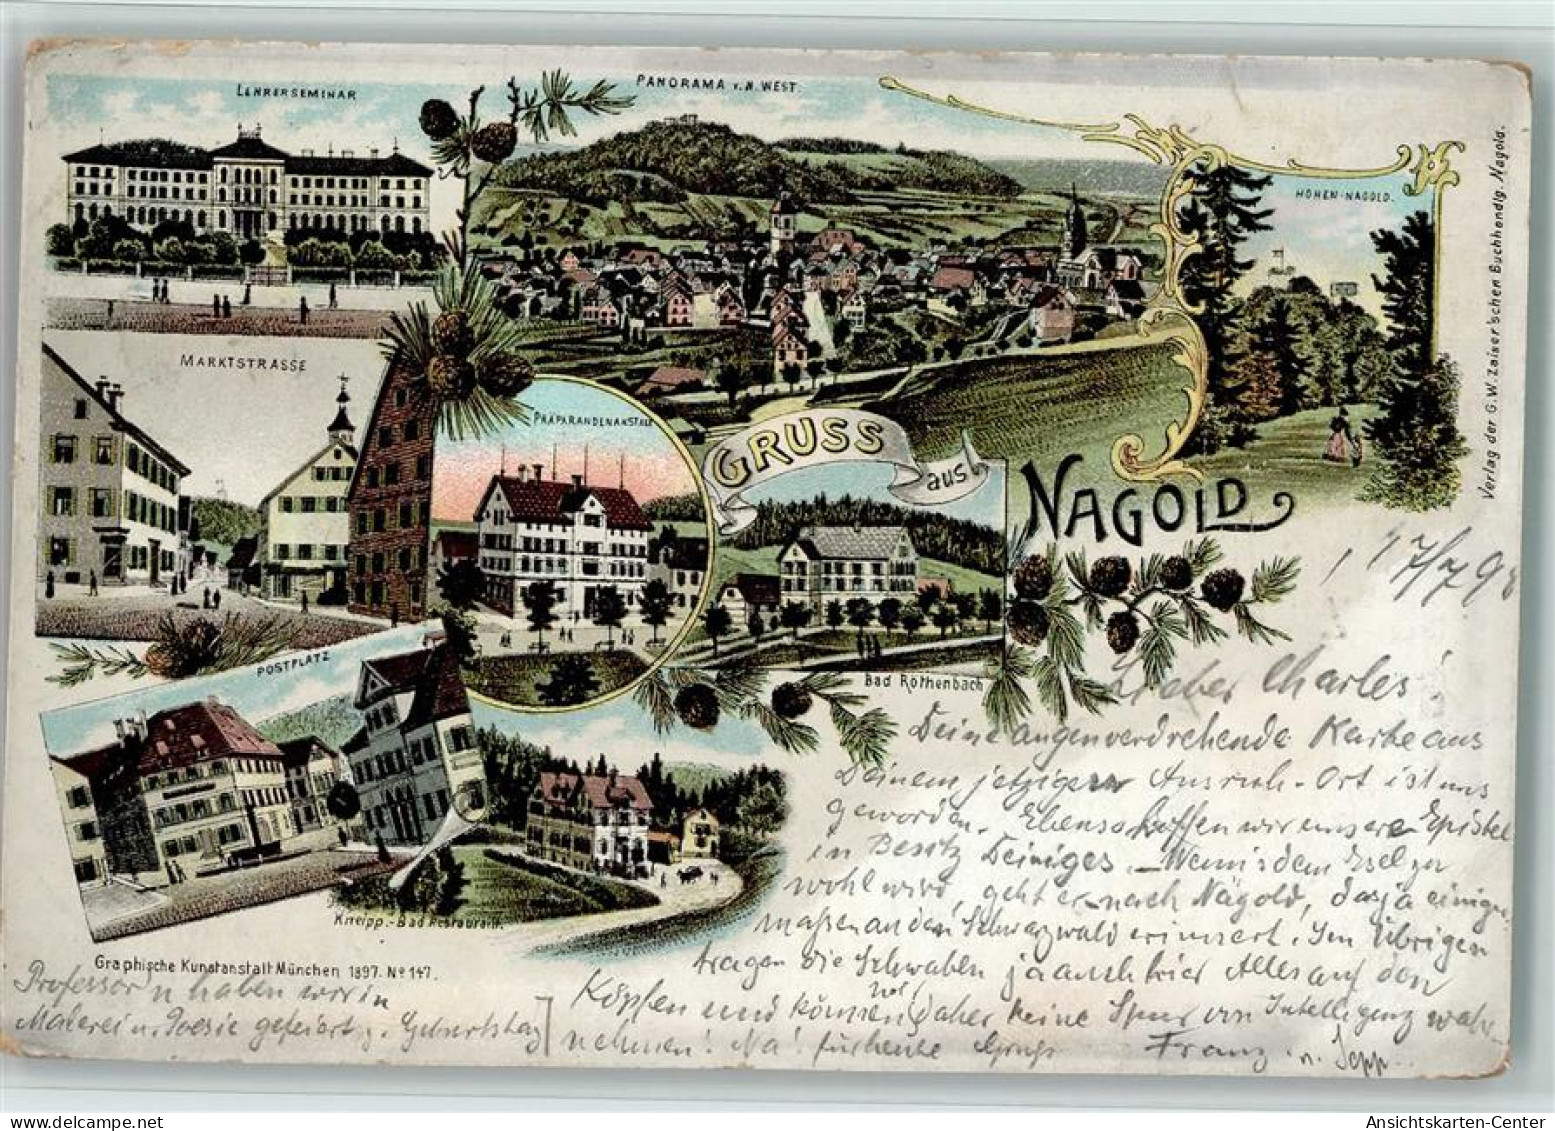 LEHRERSEMINAR
PANORAMA v. N. WEST.
HOHEN-NAGOLD.
Verlag der G.W. Zaiser'schen Buchhandlg. Nagold.
MARKTSTRASSE
PRÄPARANDENANSTALT
GRUSS
aus
NAGOLD
Bad Röthenbach
POSTPLATZ
Kneipp.-Bad Restaurant.
Graphische Kunstanstalt München 1897. No 147.
17/7 98
Lieber Charles!
Deine augenverdrehende Karte aus
Deinem jetzigen Ausruh-Ort ist uns
geworden. Ebenso hoffen wir unsere Epistel
in Besitz Deiniges. - Wenn's dem Esel zu
wohl wird, geht er nach Nagold, das ja einiger
maßen an den Schwarzwald erinnert. Im Übrigen
tragen die Schwaben ja auch hier Alles auf den
Köpfen und können daher keine Spur von Intelligenz wahr
nehmen! Na! für heute Gruß Franz u. Sepp.
Professor haben wir in
Malerei u. Poesie gefeiert z. Geburtstag
Ansichtskarten-Center